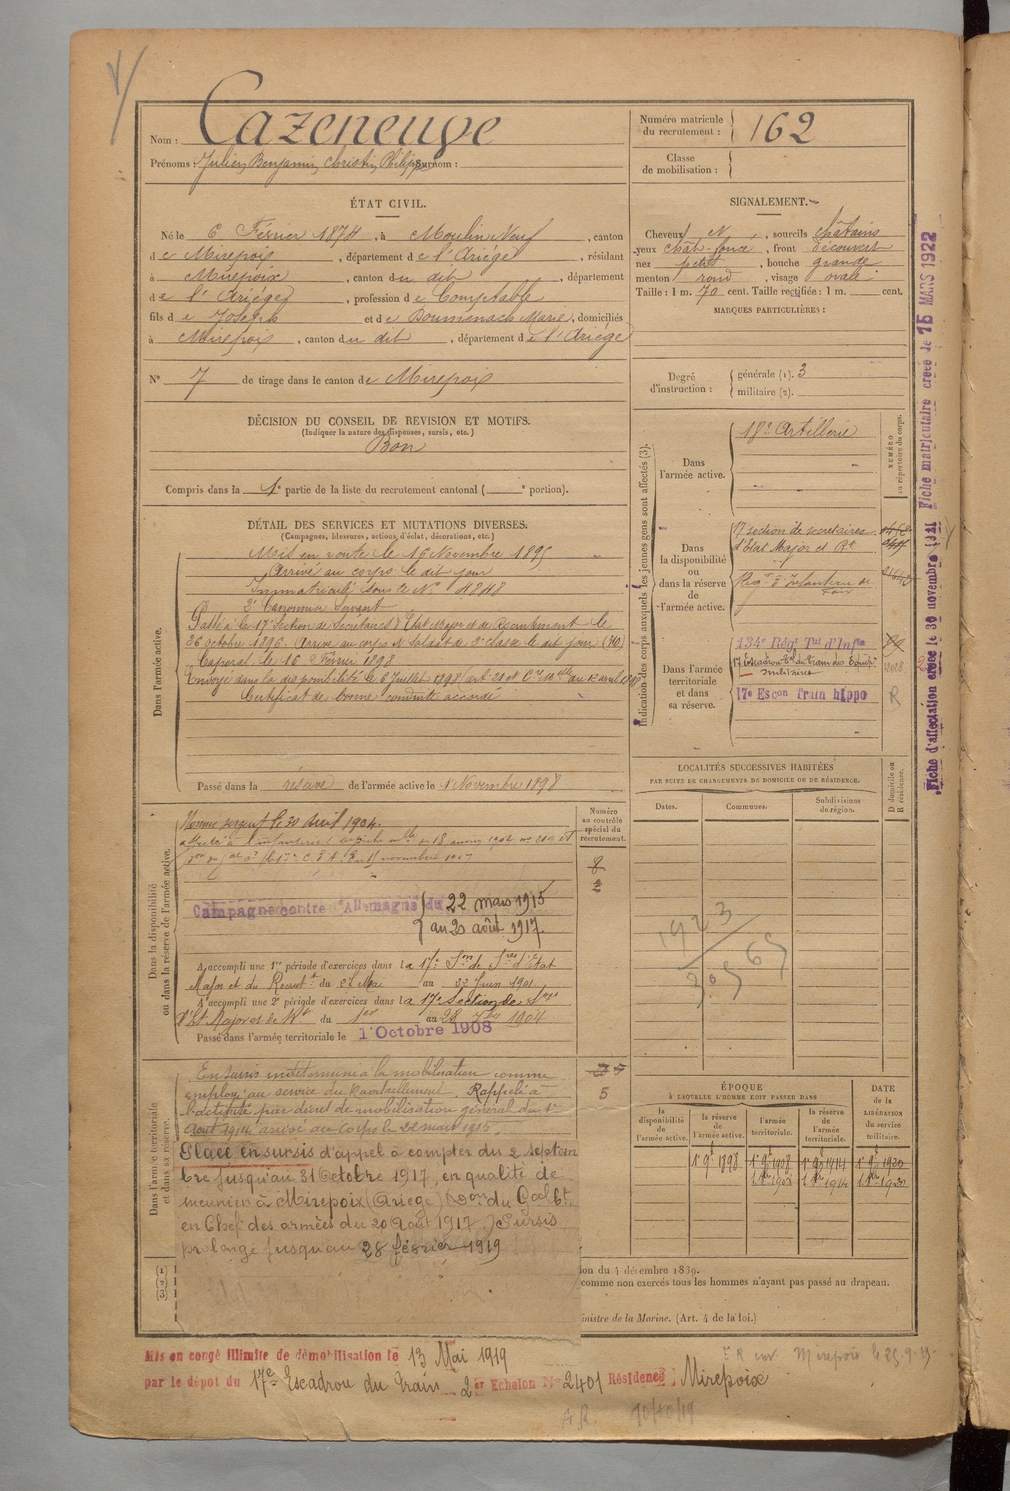 Nom : Cazeneuve
Prénoms : Julien, Benjamin, Christin, Philippe Surnom :
Numéro matricule du recrutement : 162
Classe de mobilisation :
ÉTAT CIVIL.
Né le 6 Février 1874, à Moulin Neuf, canton
de Mirepoix, département de l'Ariège, résidant
à Mirepoix, canton du dit, département
de l'Ariège, profession de Comptable
fils de Joseph et de Boumenach Marie, domiciliés
à Mirepoix, canton du dit, département de l'Ariège
N° 7 de tirage dans le canton de Mirepoix
SIGNALEMENT.
Cheveux N, sourcils châtains
yeux chât-foncé, front découvert
nez petit, bouche grande
menton rond, visage ovale
Taille : 1 m. 70 cent. Taille rectifiée : 1 m. cent.
MARQUES PARTICULIÈRES :
Degré d'instruction : générale (1). 3
militaire (2).
DÉCISION DU CONSEIL DE REVISION ET MOTIFS.
(Indiquer la nature des dispenses, sursis, etc.)
Bon
Compris dans la 1e partie de la liste du recrutement cantonal ( e portion).
DÉTAIL DES SERVICES ET MUTATIONS DIVERSES.
(Campagnes, blessures, actions d'éclat, décorations, etc.)
Dans l'armée active.
Mis en route le 16 Novembre 1895
Arrivé au corps le dit jour
Immatriculé sous le N° 4848
2e Canonnier Servant
Passé à la 17e Section de Secrétaires d'Etat Major et de Recrutement le
26 octobre 1896. Arrivé au corps et soldat de 2e classe le dit jour
Caporal le 16 Février 1898
Envoyé dans la disponibilité le 6 Juillet 1898
Certificat de bonne conduite accordé
Passé dans la réserve de l'armée active le 1 Novembre 1898
Indication des corps auxquels les jeunes gens sont affectés (3).
NUMÉRO au répertoire du corps.
Dans l'armée active.
18e Artillerie
Dans la disponibilité ou dans la réserve de l'armée active.
17 section de secretaires
d'Etat Major et Rt
Regt d'Infanterie de
Foix
Dans l'armée territoriale et dans sa réserve.
134e Régt Tal d'Infie
17 Escadron Tal du Train des Equip.
militaires
17e Escon Train hippo
R
LOCALITÉS SUCCESSIVES HABITÉES
PAR SUITE DE CHANGEMENTS DE DOMICILE OU DE RÉSIDENCE.
Dates.
Communes.
Subdivisions de région.
D domicile ou R résidence.
1923
Dans la disponibilité ou dans la réserve de l'armée active.
Numéro au contrôle spécial du recrutement.
Nommé sergent le 20 Avril 1904.
8
2
Campagne contre l'Allemagne du 22 mars 1915
au 20 août 1917.
A accompli une 1re période d'exercices dans la 17e Son de Sres d'Etat
Major et du Recrutt du 27 Mai au 23 Juin 1901
A accompli une 2e période d'exercices dans la 17e Section de Sres
d'Et Major et de Rt du 1er au 28 1904
Passé dans l'armée territoriale le 1 Octobre 1908
Dans l'armée territoriale et dans sa réserve.
En sursis à la mobilisation comme
employé au service du Ravitaillement. Rappelé à
l'activité par décret de mobilisation général du 1er
Août 1914 arrivé au Corps le 22 mars 1915.
5
Placé en sursis d'appel à compter du 2 septem
bre jusqu'au 31 Octobre 1917, en qualité de
meunier à Mirepoix (Ariège) (Don du Gal Ct
en Chef des armées du 20 Août 1917.) Sursis
prolongé jusqu'au 28 février 1919
ÉPOQUE
À LAQUELLE L'HOMME DOIT PASSER DANS
DATE de la LIBÉRATION du service militaire.
la disponibilité de l'armée active.
la réserve de l'armée active.
l'armée territoriale.
la réserve de l'armée territoriale.
1 9t 1898
1 9t 1908
1 9t 1914
1 9t 1920
(1)
(2)
(3)
ion du 4 décembre 1889.
comme non exercés tous les hommes n'ayant pas passé au drapeau.
inistre de la Marine. (Art. 4 de la loi.)
Mis en congé illimité de démobilisation le 13 Mai 1919
par le dépot du 17e Escadron du Train 2er Echelon N° 2401 Résidence : Mirepoix
Mirepoix le 25-9-19
10/10/19
Fiche d'affectation créée le 30 novembre 1911
Fiche matriculaire créée le 15 MARS 1922